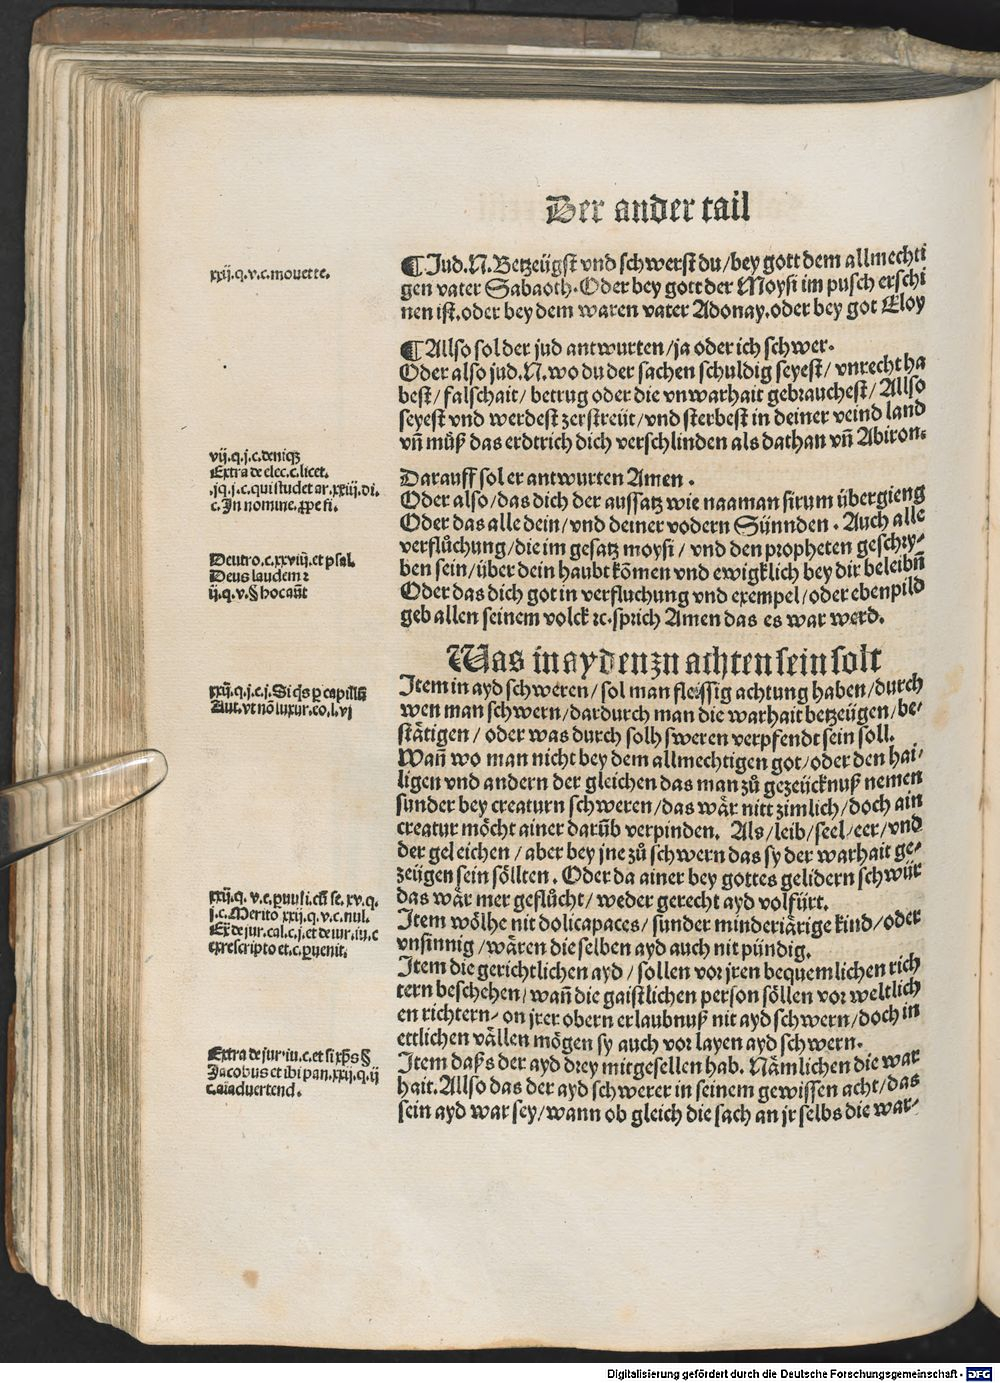 Der ander tail
xxij.q.v.c.mouette.
¶Jud.N.Betzeügst vnd schwerst du/bey gott dem allmechti
gen vater Sabaoth.Oder bey gott der Moysi im pusch erschi
nen ist.oder bey dem waren vater Adonay.oder bey got Eloy
¶Allso sol der jud antwurten/ja oder ich schwer.
Oder also jud.N.wo du der sachen schuldig seyest/vnrecht ha
best/falschait/betrug oder die vnwarhait gebrauchest/Allso
seyest vnd werdest zerstreüt/vnd sterbest in deiner veind land
vn̄ můß das erdtrich dich verschlinden als dathan vn̄ Abiron.
vij.q.j.c.deniqz
Extra de elec.c.licet.
.jq.j.c.qui studet ar.xxiij.di.
c.In nomine.ꝓpe fi.
Darauff sol er antwurten Amen.
Oder also/das dich der aussatz wie naaman sirum übergieng
Oder das alle dein/vnd deiner vodern Sünnden. Auch alle
verflůchung/die im gesatz moysi/vnd den propheten geschry-
ben sein/über dein haubt kōmen vnd ewigklich bey dir beleibn̄
Oder das dich got in verfluchung vnd exempel/oder ebenpild
geb allen seinem volck ꝛc.sprich Amen das es war werd.
Deutro.c.xxviij.et psal.
Deus laudem ꝛ
ij.q.v.§ hocaūt
Was in ayden zu achten sein solt
xxij.q.j.c.j.Si q̄s ꝑ capillū
Aut.vt nō luxur.co.l.vj
Item in ayd schweren/sol man fleissig achtung haben/durch
wen man schwern/dardurch man die warhait betzeügen/be-
stätigen/oder was durch solh sweren verpfendt sein soll.
Wan̄ wo man nicht bey dem allmechtigen got/oder den hai-
ligen vnd andern der gleichen das man zů gezeücknuß nemen
sunder bey creaturn schweren/das wär nitt zimlich/doch ain
creatur möcht ainer darūb verpinden. Als/leib/seel/eer/vnd
der geleichen/aber bey jne zů schwern das sy der warhait ge-
zeügen sein söllten.Oder da ainer bey gottes gelidern schwür
das wär mer geflůcht/weder gerecht ayd volfürt.
xxij.q.v.c.ꝑuuli.cū se.xv.q.
j.c.Merito xxij.q.v.c.nul.
Ex̄ de jur.cal.c.j.et de iur.iu.c
ex rescripto et.c.ꝑuenit.
Item wölhe nit dolicapaces/sunder minderiärige kind/oder
vnsinnig/wären die selben ayd auch nit pündig.
Item die gerichtlichen ayd/sollen vor jren bequemlichen rich
tern beschehen/wan̄ die gaistlichen person söllen vor weltlich
en richtern/on jrer obern erlaubnuß nit ayd schwern/doch in
ettlichen vällen mögen sy auch vor layen ayd schwern.
Extra de jur.iu.c.et si xp̄s §
Jacobus et ibi pan.xxij.q.ij
c.aīaduertend.
Item daß s der ayd drey mitgesellen hab. Nämlichen die war
hait.Allso das der ayd schwerer in seinem gewissen acht/das
sein ayd war sey/wann ob gleich die sach an jr selbs die war-
Digitalisierung gefördert durch die Deutsche Forschungsgemeinschaft - DFG